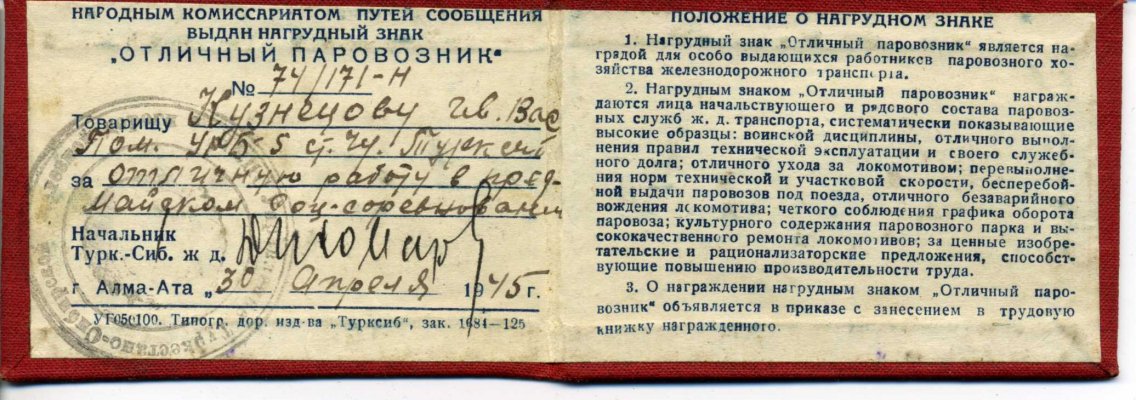 НАРОДНЫМ КОМИССАРИАТОМ ПУТЕЙ СООБЩЕНИЯ
ВЫДАН НАГРУДНЫЙ ЗНАК
„ОТЛИЧНЫЙ ПАРОВОЗНИК“
№ 74/171-Н
Товарищу Кузнецову Вас
Пом.
за отличную работу в пред-
майском соц-соревновании
Начальник
Турк.-Сиб. ж д.
г. Алма-Ата „30 апреля 1945 г.
УГ050100. Типогр. дор. изд-ва „Турксиб“, зак. 1684—125
ПОЛОЖЕНИЕ О НАГРУДНОМ ЗНАКЕ
1. Нагрудный знак „Отличный паровозник“ является на-
градой для особо выдающихся работников паровозного хо-
зяйства железнодорожного транспорта.
2. Нагрудным знаком „Отличный паровозник“ награж-
даются лица начальствующего и рядового состава паровоз-
ных служб ж. д. транспорта, систематически показывающие
высокие образцы: воинской дисциплины, отличного выпол-
нения правил технической эксплуатации и своего служеб-
ного долга; отличного ухода за локомотивом; перевыполне-
ния норм технической и участковой скорости, бесперебой-
ной выдачи паровозов под поезда, отличного безаварийного
вождения локомотива; четкого соблюдения графика оборота
паровоза; культурного содержания паровозного парка и вы-
сококачественного ремонта локомотивов; за ценные изобре-
тательские и рационализаторские предложения, способст-
вующие повышению производительности труда.
3. О награждении нагрудным знаком „Отличный паро-
возник“ объявляется в приказе с занесением в трудовую
книжку награжденного.